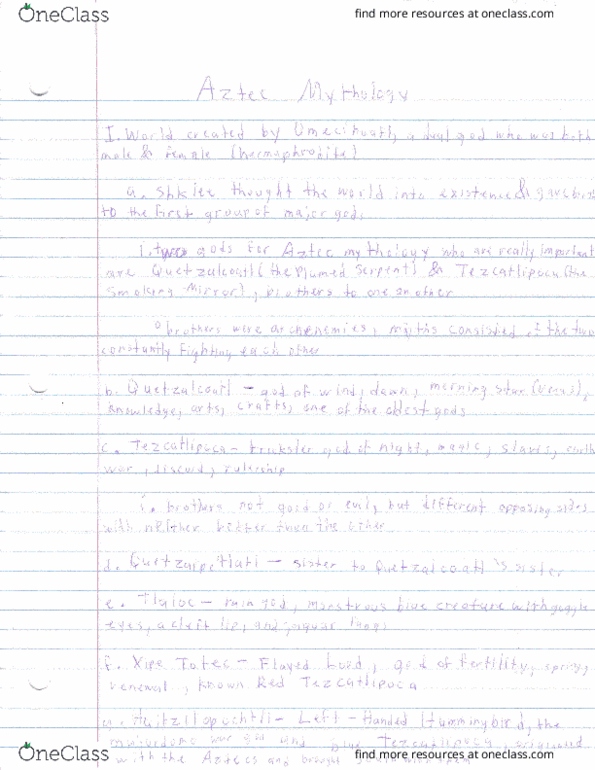 OneClass
find more resources at oneclass.com
Aztec Mythology
I. World created by Omecihoatl, a dual god who was both
male & female (hermaphrodite)
a. thought the world into existence & gave birth
to the first group of major gods
1. two gods for Aztec mythology who are really important
are Quetzalcoatl (the Plumed Serpent) & Tezcatlipoca (the
Smoking Mirror), brothers to one another
brothers were archenemies, myths consisted of the two
constantly fighting each other
b. Quetzalcoatl - god of wind, dawn, morning star (Venus),
knowledge, arts, crafts, one of the oldest gods
c. Tezcatlipoca - trickster god of night, magic, slaves, earth
war, discord, rulership
i. brothers not good or evil, but different opposing sides
with neither better than the other
d. Quetzalpetlatl - sister to Quetzalcoatl is sister
e. Tlaloc - rain god, monstrous blue creature with goggle
eyes, a cleft lip, and jaguar fangs
f. Xipe Totec - Flayed Lord, god of fertility, spring,
renewal, known Red Tezcatlipoca
g. Huitzilopochtli - Left-Handed Hummingbird, the
war god and blue Tezcatlipoca, originated
OneClass
find more resources at oneclass.com
with the Aztecs and brought